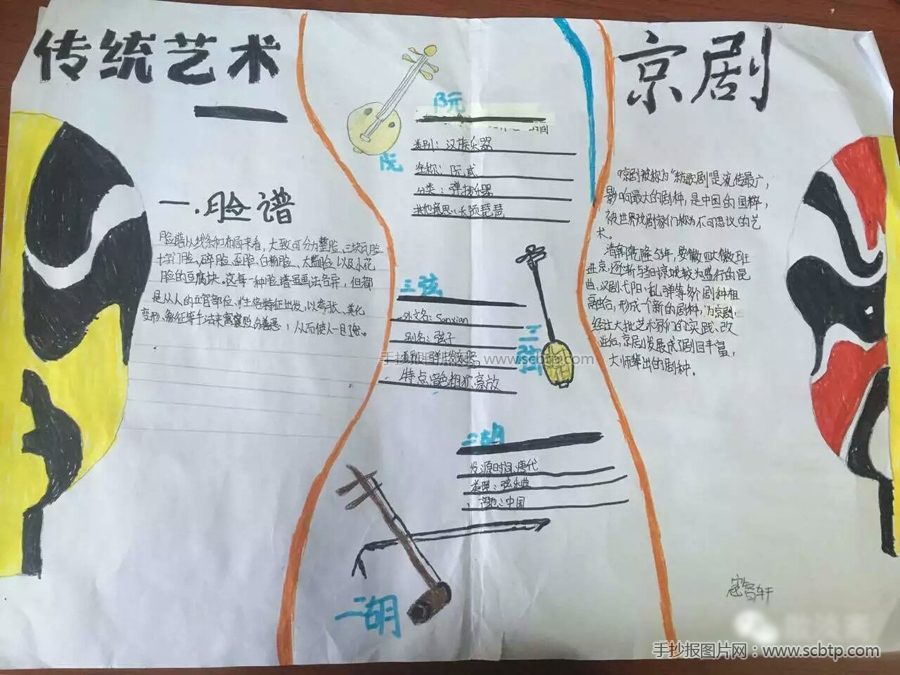 传统艺术
一.脸谱
脸谱从线条和布局来看，大致可分为整脸、三块瓦脸
十字门脸、碎脸、歪脸、白粉脸、太监脸、以及小花
脸的豆腐块。这每一种脸谱画出各异，但都
是从人的五官部位、性格特征出发，以夸张、美化
变形、象征等手法来寓褒贬分善恶，从而使人一目了然。
阮
阮
类别：汉族乐器
全称：阮咸
分类：弹拨乐器
长颈琵琶
三弦
外文名：Sanxian
别名：弦子
特点：音色粗犷豪放
三弦
二胡
发源时间：唐代
类型：弦乐曲
中国
二胡
京剧
京剧被称为“新歌剧”是流传最广，
影响最大的剧种，是中国的国粹，
被世界戏剧家们称为不可思议的艺
术。
清朝乾隆55年，安徽四大徽班
进京，逐渐与
曲、汉剧、弋阳、乱弹等多个剧种相
融合，形成一个新的剧种，为京剧。
经过大批艺术家们的实践、改
进后，京剧发展成了剧目丰富，
大师辈出的剧种。
手抄报图片网 www.scbtp.com
手抄报图片网：www.scbtp.com